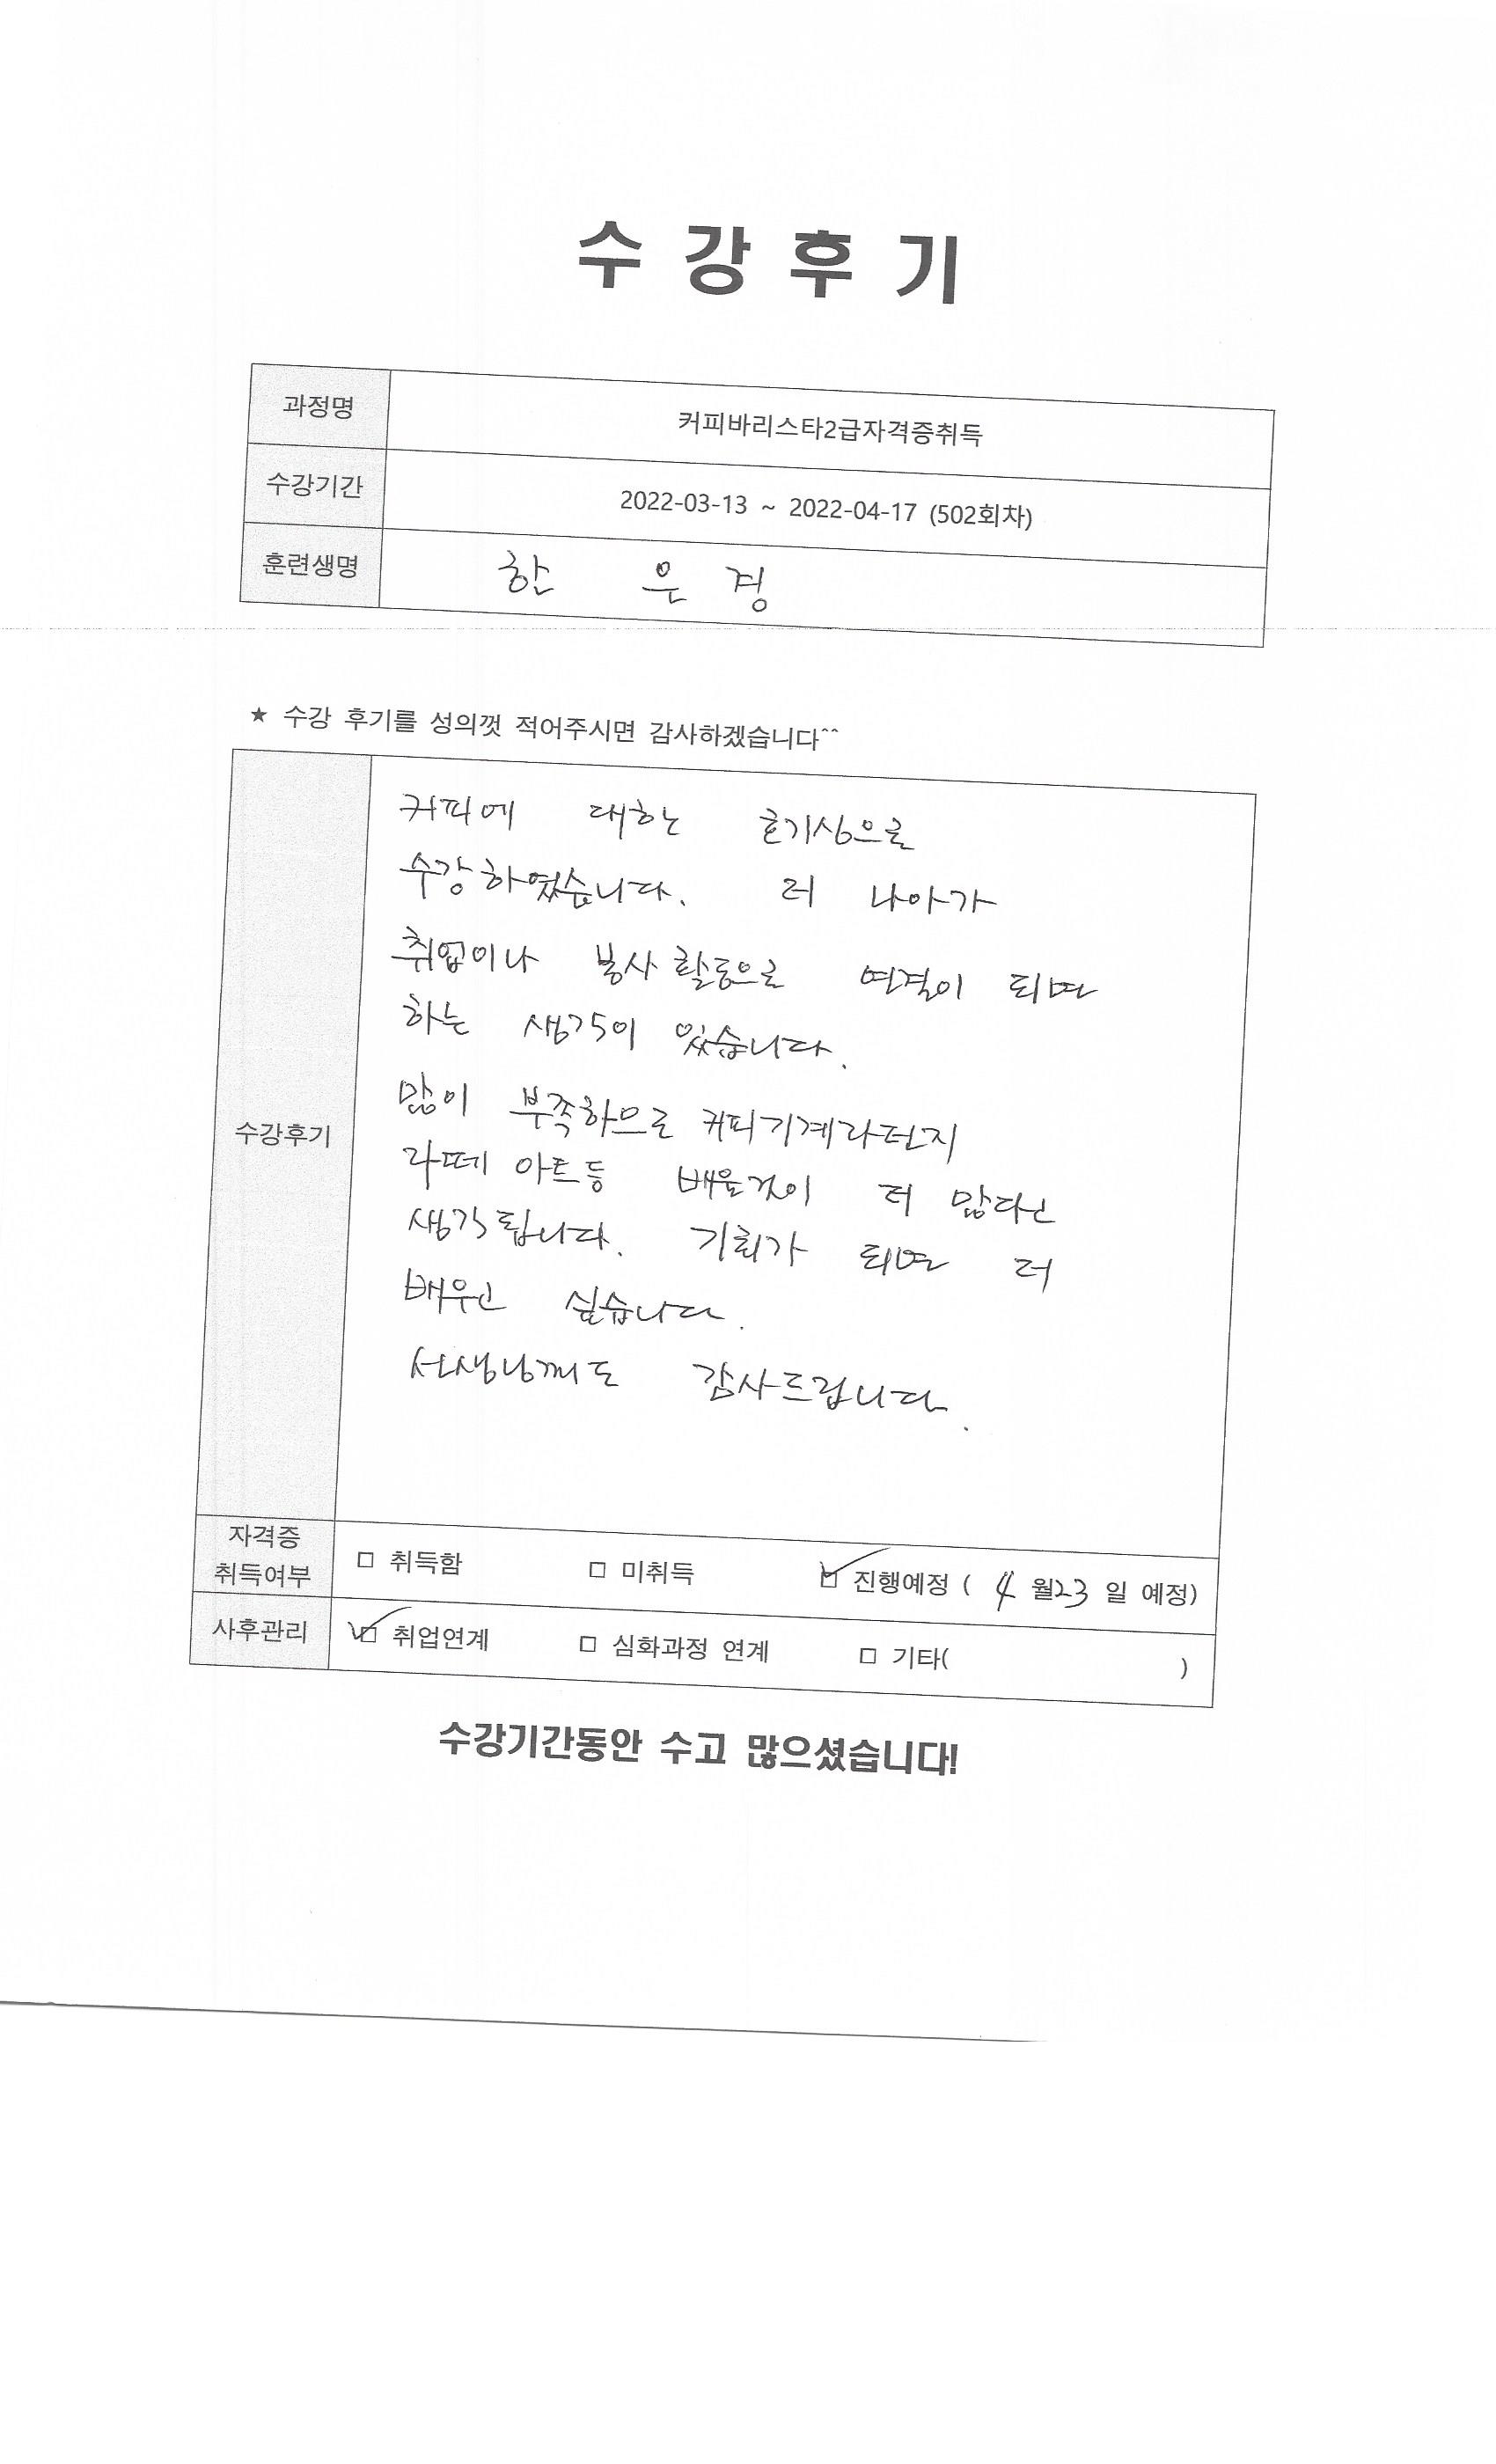 수 강 후 기
과정명 커피바리스타2급자격증취득
수강기간 2022-03-13 ~ 2022-04-17 (502회차)
훈련생명 한 은 경
★ 수강 후기를 성의껏 적어주시면 감사하겠습니다^^
수강후기
커피에 대한 호기심으로
수강하였습니다. 더 나아가
취업이나 봉사활동으로 연결이 되면
하는 생각이 있습니다.
많이 부족하므로 커피기계라던지
라떼 아트등 배울것이 더 많다고
생각됩니다. 기회가 되면 더
배우고 싶습니다.
선생님께도 감사드립니다.
자격증
취득여부 □ 취득함 □ 미취득 ☑ 진행예정 ( 4 월23 일 예정)
사후관리 ☑ 취업연계 □ 심화과정 연계 □ 기타( )
수강기간동안 수고 많으셨습니다!